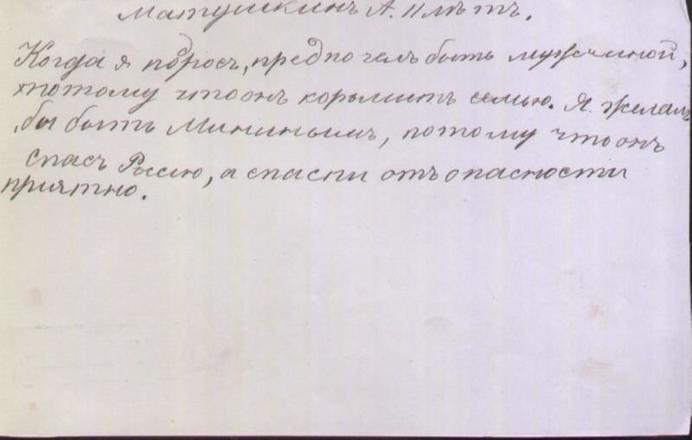 Матушкинъ А. 11 лѣтъ.
Когда я поросъ, предпочелъ быть мужчиной,
потому что онъ кормитъ семью. Я желалъ
бы быть Мининымъ, потому что онъ
спасъ Россію, а спасти отъ опасности
приятно.